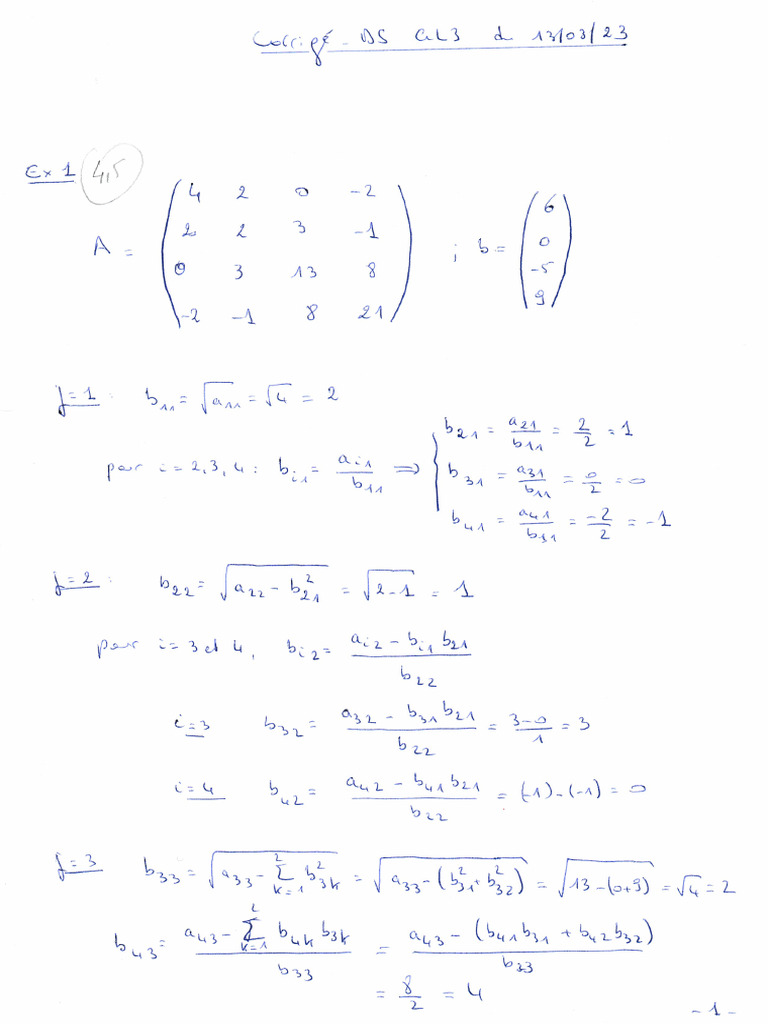 Corrigé - DS GL3 du 13/03/23
Ex 1 4,5
A = ( 4 2 0 -2
2 2 3 -1
0 3 13 8
-2 -1 8 21 ) ; b = ( 6
0
-5
9 )
j=1 : b₁₁ = √a₁₁ = √4 = 2
pour i = 2,3,4 : bᵢ₁ = aᵢ₁/b₁₁ ⟹ { b₂₁ = a₂₁/b₁₁ = 2/2 = 1
b₃₁ = a₃₁/b₁₁ = 0/2 = 0
b₄₁ = a₄₁/b₁₁ = -2/2 = -1
j=2 : b₂₂ = √(a₂₂ - b₂₁²) = √(2-1) = 1
pour i = 3 et 4, bᵢ₂ = (aᵢ₂ - bᵢ₁ b₂₁)/b₂₂
i=3 b₃₂ = (a₃₂ - b₃₁ b₂₁)/b₂₂ = (3-0)/1 = 3
i=4 b₄₂ = (a₄₂ - b₄₁ b₂₁)/b₂₂ = (-1)-(-1) = 0
j=3 b₃₃ = √(a₃₃ - Σ_{k=1}^{2} b₃ₖ²) = √(a₃₃ - (b₃₁² + b₃₂²)) = √(13 - (0+9)) = √4 = 2
b₄₃ = (a₄₃ - Σ_{k=1}^{2} b₄ₖ b₃ₖ)/b₃₃ = (a₄₃ - (b₄₁ b₃₁ + b₄₂ b₃₂))/b₃₃
= 8/2 = 4
-1-